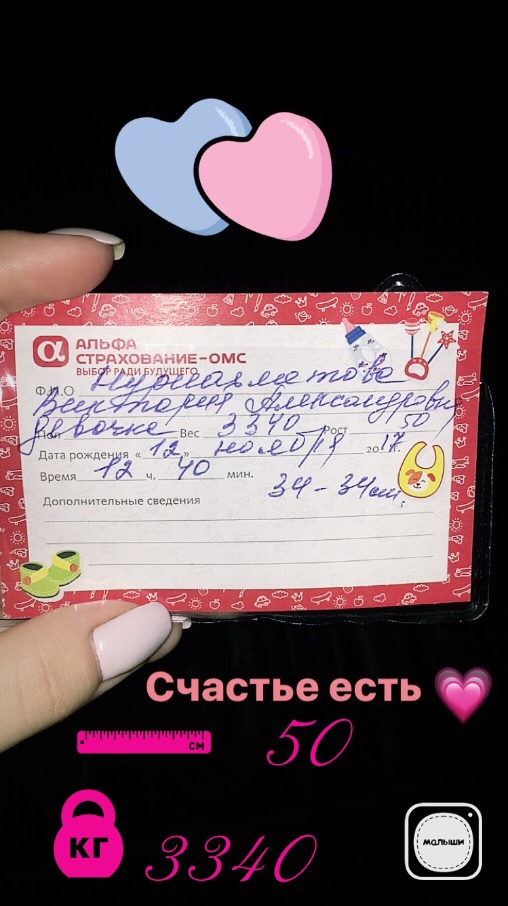 α АЛЬФА
СТРАХОВАНИЕ–ОМС
ВЫБОР РАДИ БУДУЩЕГО
Ф.И.О Нурмахметова
Виктория Александровна
Пол девочка Вес 3340 Рост 50
Дата рождения «12» ноября 2017.
Время 12 ч. 40 мин.
34-34см.
Дополнительные сведения
Счастье есть
см 50
КГ 3340
малыши